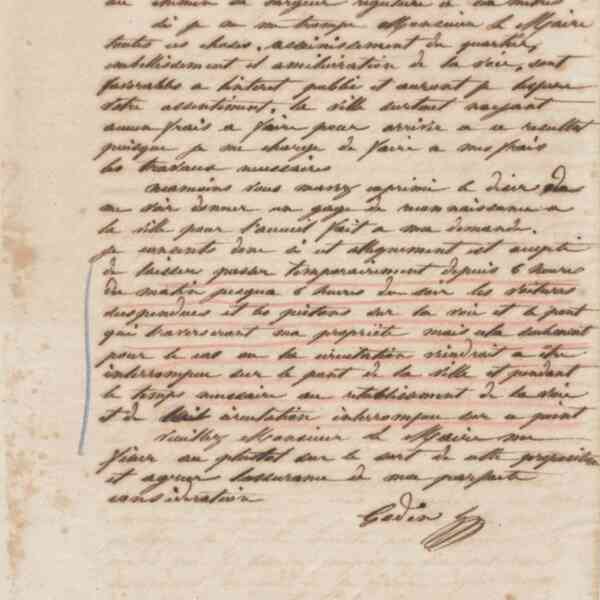 au chemin de largeur régulière à six mètres
Si je ne me trompe Monsieur le Maire
toutes ces choses, assainissement du quartier,
embellissement et amélioration de la voie, sont
favorables a linteret public et auront je lespère
votre assentiment. la ville surtout nayant
aucun frais a faire pour arriver a ce resultat
puisque je me charge de faire a mes frais
les travaux necessaires
neamoins vous mavez exprimé le désir de
me voir donner un gage de reconnaissance a
la ville pour laccueil fait a ma demande.
je consents donc si cet alignement est accepté
de laisser passer temporairement depuis 6 heures
du matin jusqua 6 heures du soir les voitures
suspendues et les piétons sur la voie et le pont
qui traverseront ma propriété mais cela seulement
pour le cas ou la circulation viendrait a etre
interrompue sur le pont de la ville et pendant
le temps necessaire au retablissement de la voie
et de circulation interrompue sur ce point
Veuillez Monsieur le Maire me
fixer au plutot sur le sort de cette proposition
et agreer lassurance de ma parfaite
consideration
Godin